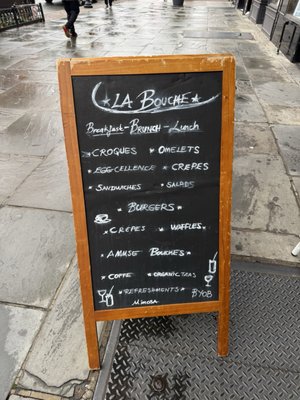 LA BOUCHE
Breakfast - BRUNCH - Lunch
CROQUES OMELETS
EGG CELLENCE CREPES
SANDWICHES SALADS
BURGERS
CREPES WAFFLES
AMUSE BOUCHES
COFFE ORGANIC TEAS
REFRESHMENTS BYOB
Mimosa